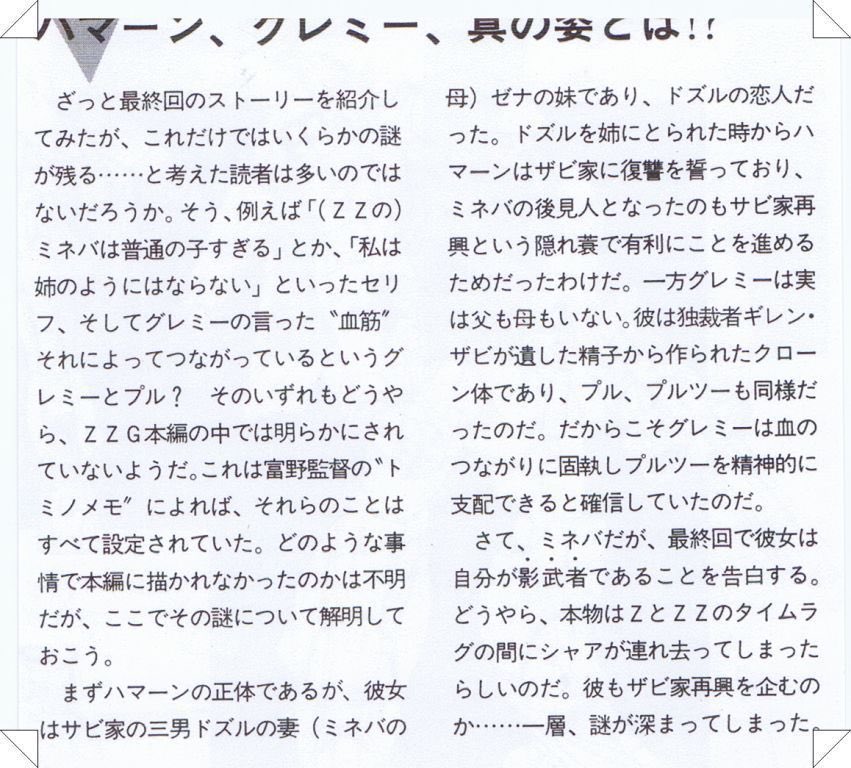 ハマーン、グレミー、真の姿とは!?
　ざっと最終回のストーリーを紹介し
てみたが、これだけではいくらかの謎
が残る……と考えた読者は多いのでは
ないだろうか。そう、例えば「(ＺＺの)
ミネバは普通の子すぎる」とか、「私は
姉のようにはならない」といったセリ
フ、そしてグレミーの言った〝血筋〟
それによってつながっているというグ
レミーとプル？　そのいずれもどうや
ら、ＺＺＧ本編の中では明らかにされ
ていないようだ。これは富野監督の〝ト
ミノメモ〟によれば、それらのことは
すべて設定されていた。どのような事
情で本編に描かれなかったのかは不明
だが、ここでその謎について解明して
おこう。
　まずハマーンの正体であるが、彼女
はサビ家の三男ドズルの妻（ミネバの
母）ゼナの妹であり、ドズルの恋人だ
った。ドズルを姉にとられた時からハ
マーンはザビ家に復讐を誓っており、
ミネバの後見人となったのもサビ家再
興という隠れ蓑で有利にことを進める
ためだったわけだ。一方グレミーは実
は父も母もいない。彼は独裁者ギレン・
ザビが遺した精子から作られたクロー
ン体であり、プル、プルツーも同様だ
ったのだ。だからこそグレミーは血の
つながりに固執しプルツーを精神的に
支配できると確信していたのだ。
　さて、ミネバだが、最終回で彼女は
自分が影武者であることを告白する。
どうやら、本物はＺとＺＺのタイムラ
グの間にシャアが連れ去ってしまった
らしいのだ。彼もザビ家再興を企むの
か……一層、謎が深まってしまった。